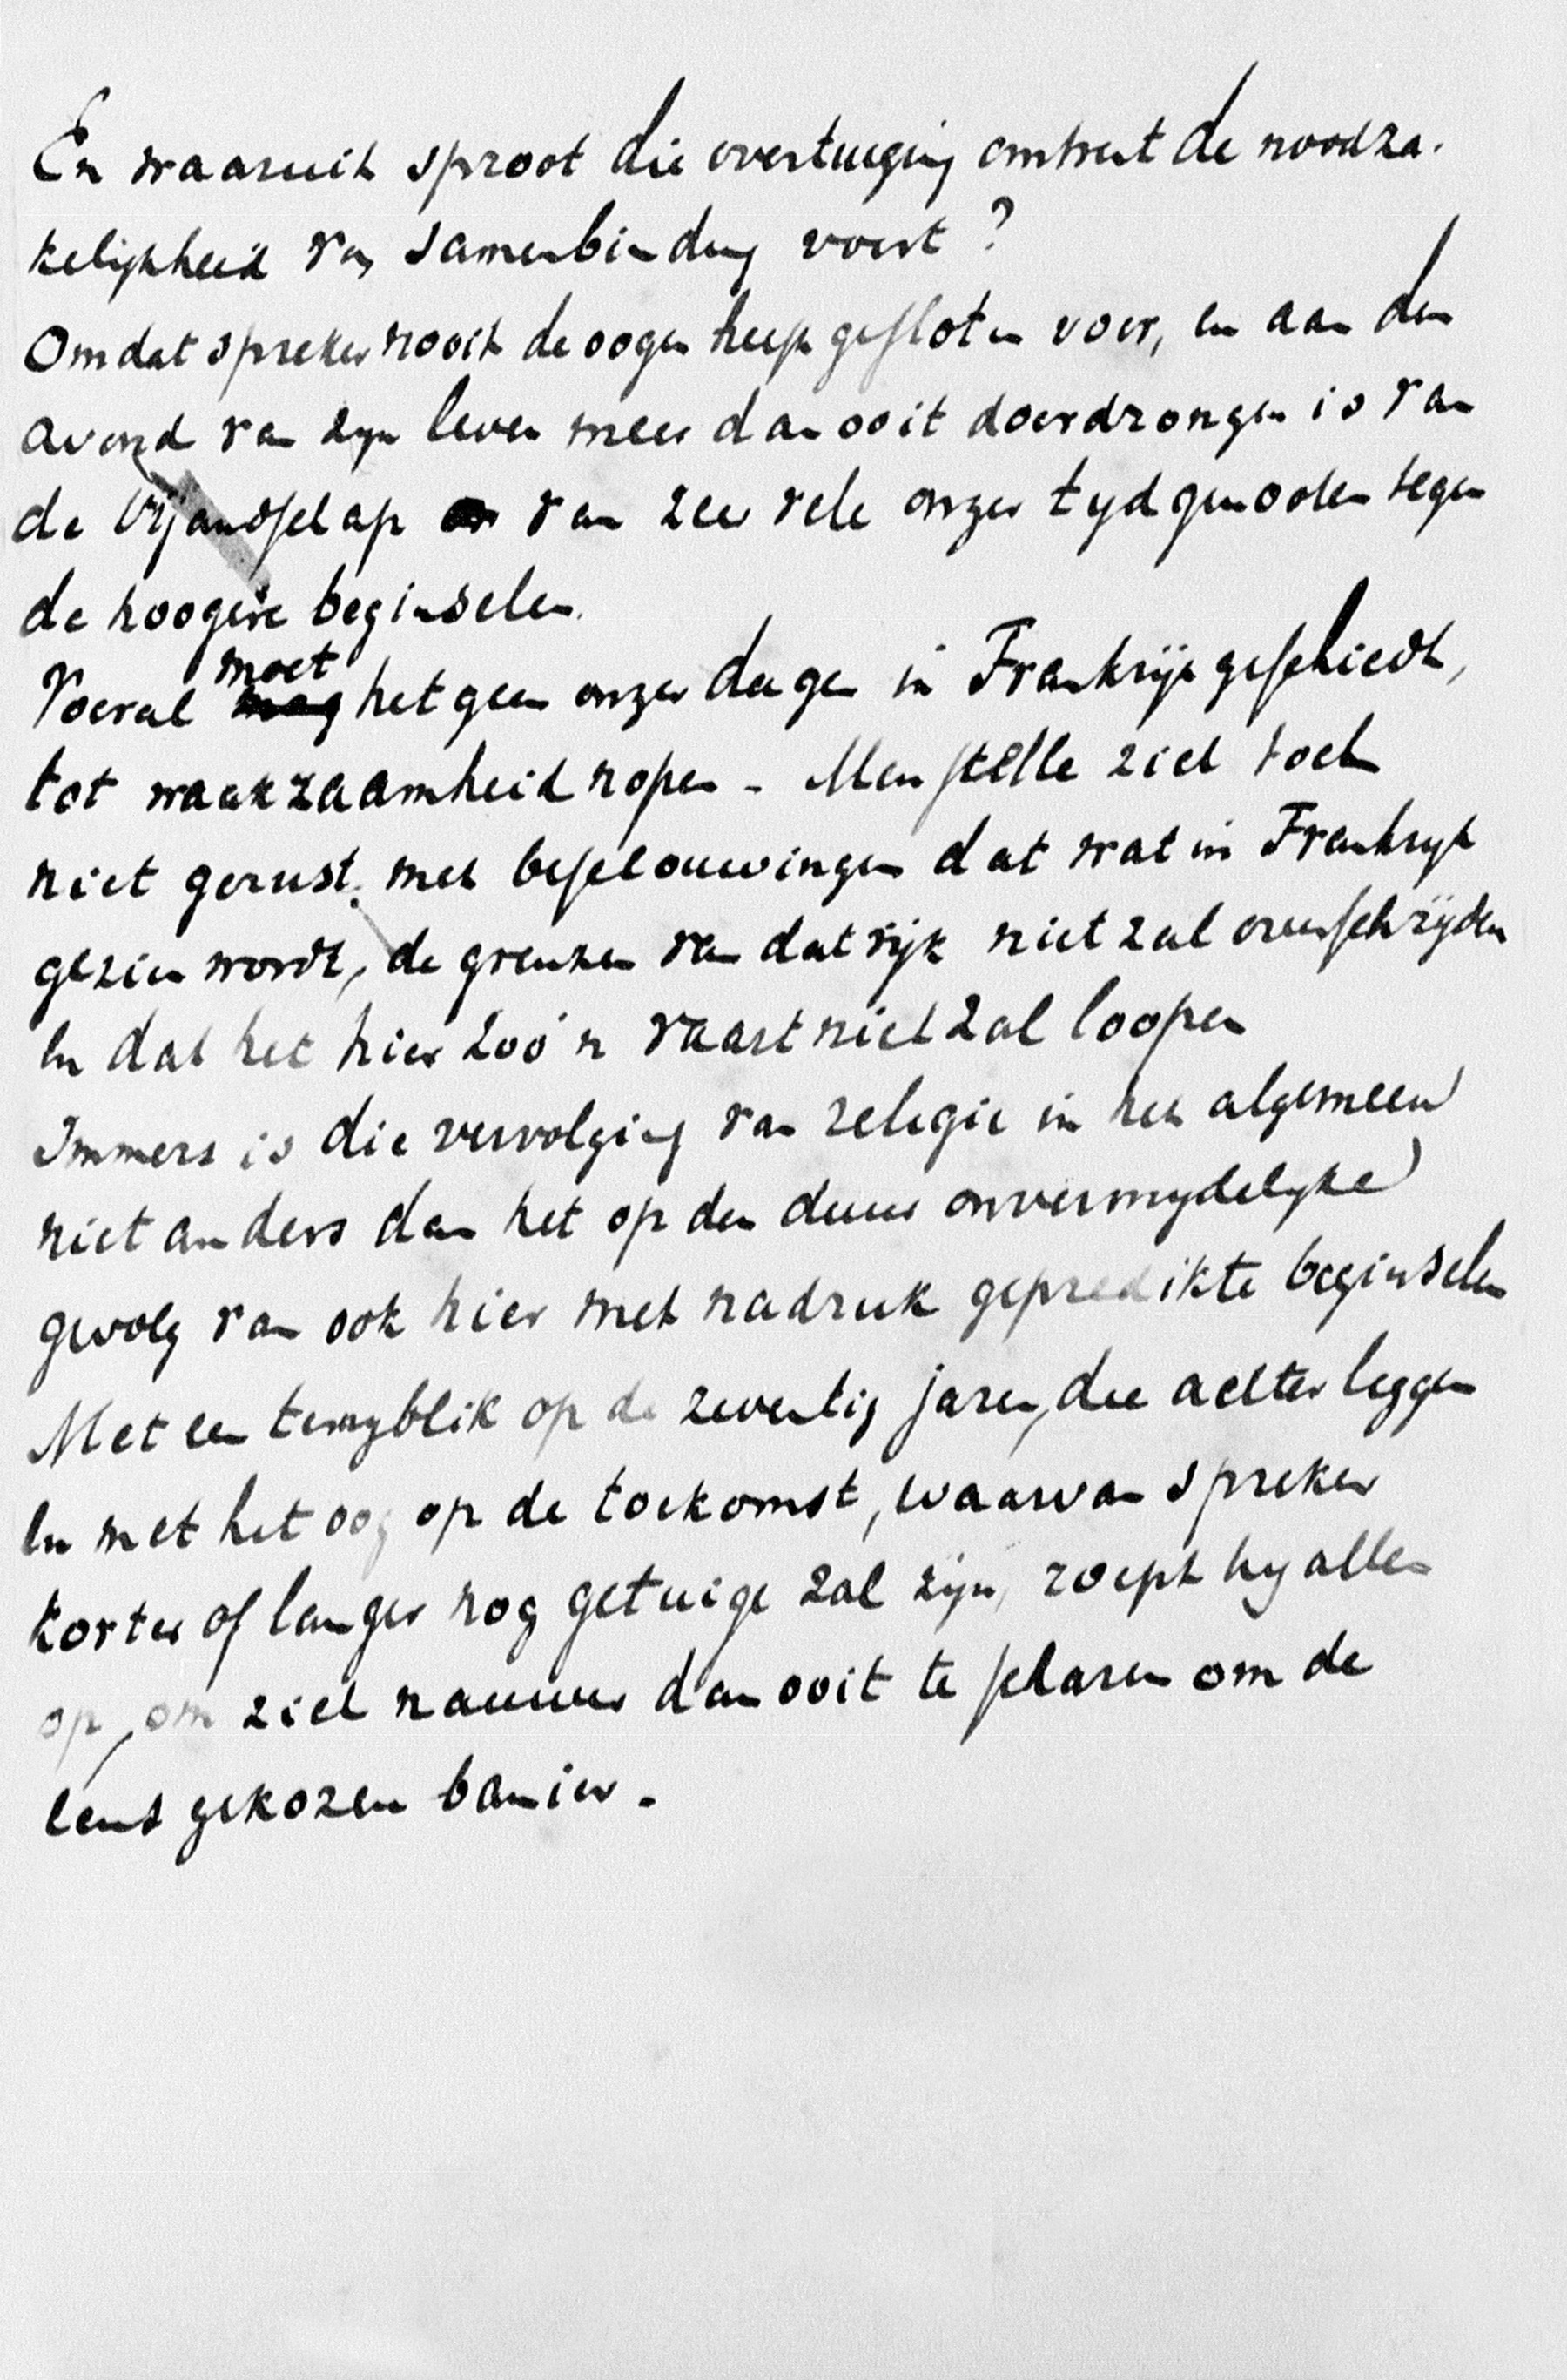 En waaruit sproot die overtuiging omtrent de noodza-
kelijkheid van samenbinding voort?
Omdat spreker nooit de oogen heeft gesloten voor, en aan den
avond van zijn leven meer dan ooit doordrongen is van
de vijandschap van zeer vele onzer tijdgenooten tegen
de hoogere beginselen.
Vooral moet hetgeen onzer dagen in Frankrijk geschiedt,
tot waakzaamheid ropen. Men stelle zich toch
niet gerust met beschouwingen dat wat in Frankrijk
gezien wordt, de grenzen van dat rijk niet zal overschrijden
en dat het hier zoo'n vaart niet zal loopen
Immers is die vervolging van religie in het algemeen
niet anders dan het op den duur onvermijdelijke
gevolg van ook hier met nadruk gepredikte beginselen
Met een terugblik op de zeventig jaren, die achter leggen
en met het oog op de toekomst, waarvan spreker
korter of langer nog getuige zal zijn, roept hij allen
op, om zich nauwer dan ooit te scharen om de
eens gekozen banier.